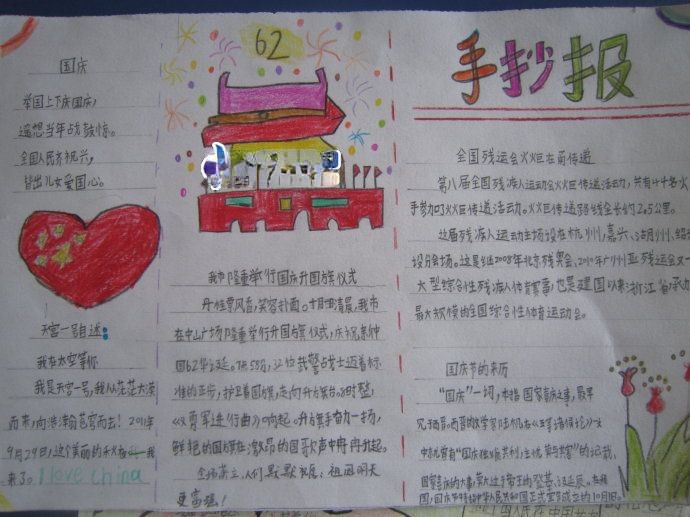 国庆
举国上下庆国庆,
遥想当年战鼓惊。
全国人民齐祝兴,
皆出儿女爱国心。
天宫一号自述:
我在太空等你
我是天宫一号,我从茫茫大漠
而来,向浩渺
2011年
9月29日,这个美丽的
我
来了。I love china
62
我市隆重举行国庆升国旗仪式
丹桂飘香,笑容扑面。十月一清晨,我市
在中山广场隆重举行升国旗仪式,庆祝新中
国62华诞。7点58分,
武警战士迈着标
准的正步,护卫着国旗,走向升旗台。8时整,
《义勇军进行曲》响起。升旗手奋力一扬,
鲜艳的国旗在激昂的国歌声中冉冉升起。
全场肃立,人们默默祝愿,祖国明天
更富强!
手抄报
全国残运会火炬在萌传递
第八届全国残疾人运动会火炬传递活动,共有
名火
手参加火炬传递活动。火炬传递路线全长约2.5公里。
这届残疾人运动主场设在杭州,嘉兴、湖州,绍
设分会场。这是继2008年北京残奥会,2010年广州亚残运会又一
大型综合性残疾人体育赛事,也是建国以来浙江省承办
最大规模的全国综合性体育运动会。
国庆节的来历
“国庆”一词,本指国家喜庆之事,最早
见于西晋。西晋的文学家陆机在《五等诸侯论》一文
中就曾有“国庆独飨其利,主忧莫与其害”的记载、
国家喜庆的大事,莫大过于帝王的登基、诞辰。
国,国庆节特指中华人民共和国正式宣告成立的10月1日。